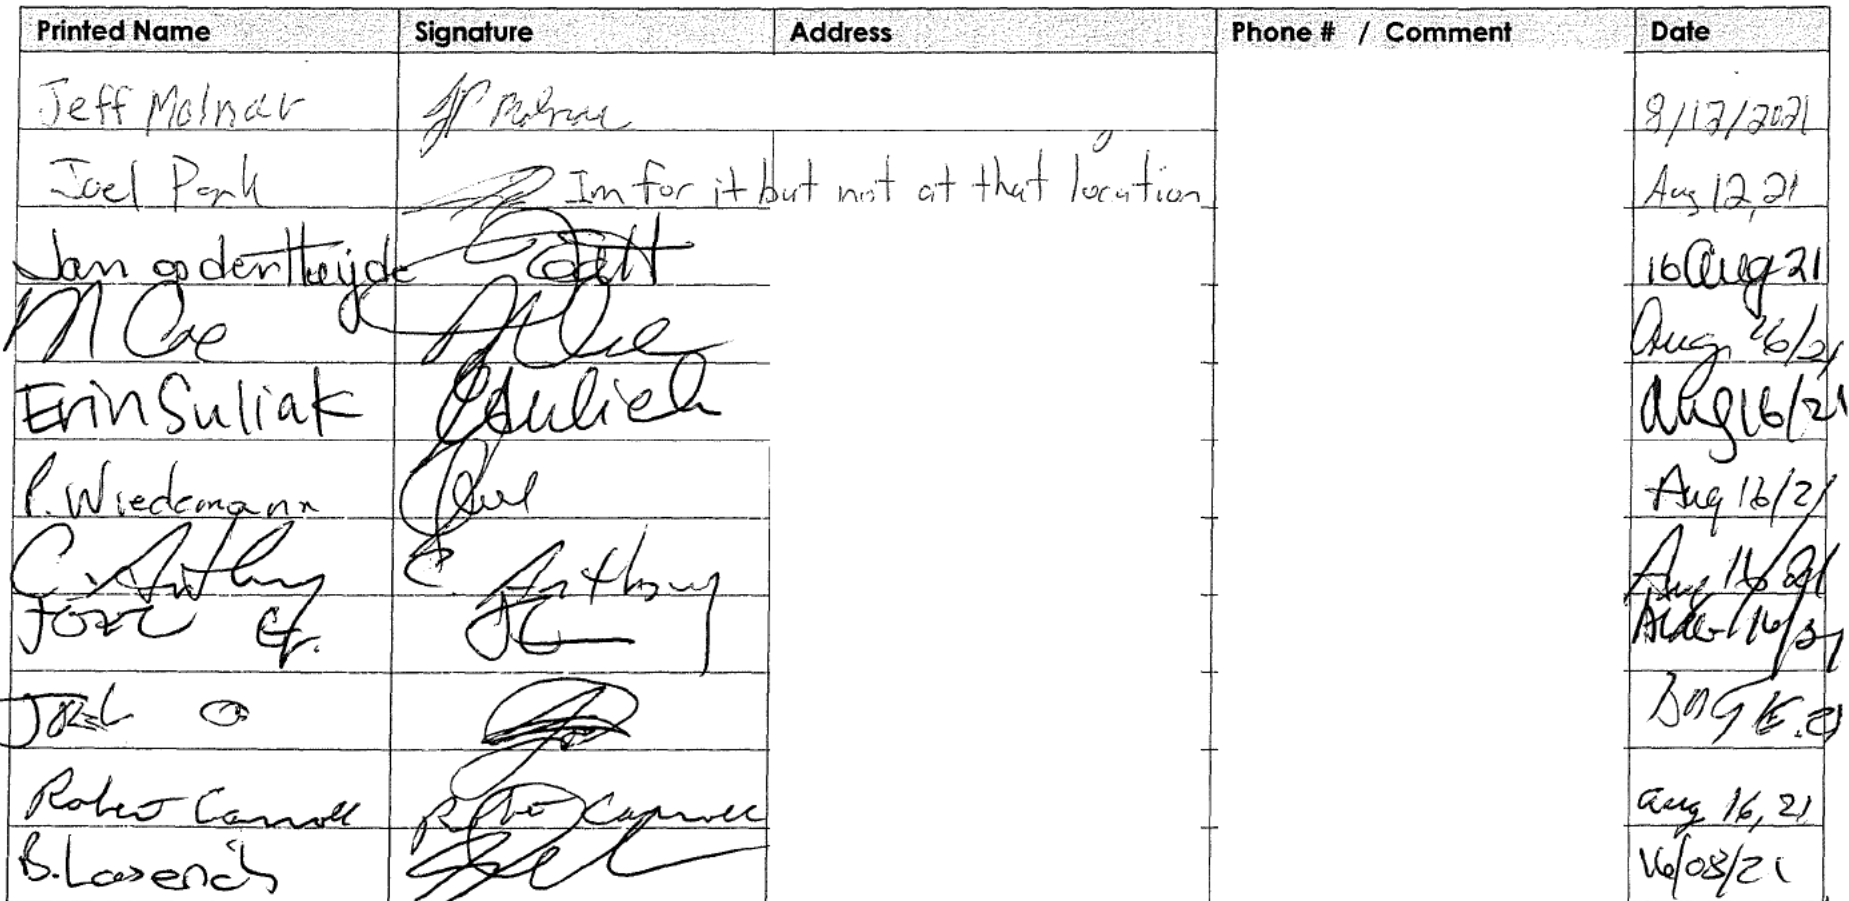 Printed Name Signature Address Phone # / Comment Date
Jeff Molnar JP Molnar 8/12/2021
Joel Park Im for it but not at that location Aug 12, 21
Jan op den Heijde 16 Aug 21
M Coe M Coe Aug 16/21
Erin Suliak ESuliak Aug 16/21
P. Wiedemann Aug 16/21
C. Anthony C. Anthony Aug 16/21
16/21
Robert Carroll Robert Carroll Aug 16, 21
B. 16/08/21